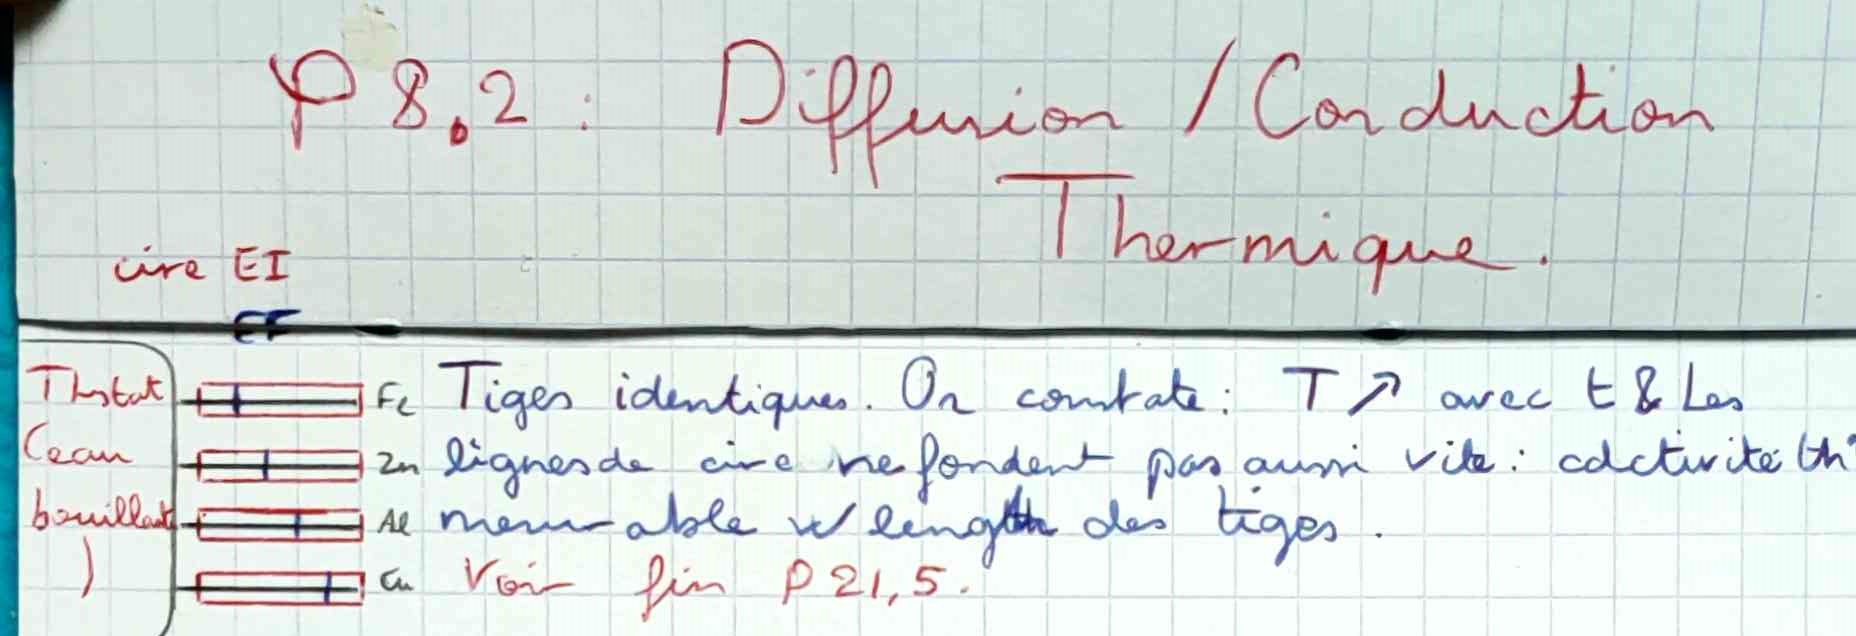 P 8.2 : Diffusion / Conduction
Thermique.
cire EI
EF
Thstat
(eau
bouillante
)
Fe
Zn
Al
Cu
Tiges identiques. On constate : T ↗ avec t & Les
lignes de cire ne fondent pas aussi vite : cdctivité th
mesurable w/ length des tiges.
Voir fin P 21,5.